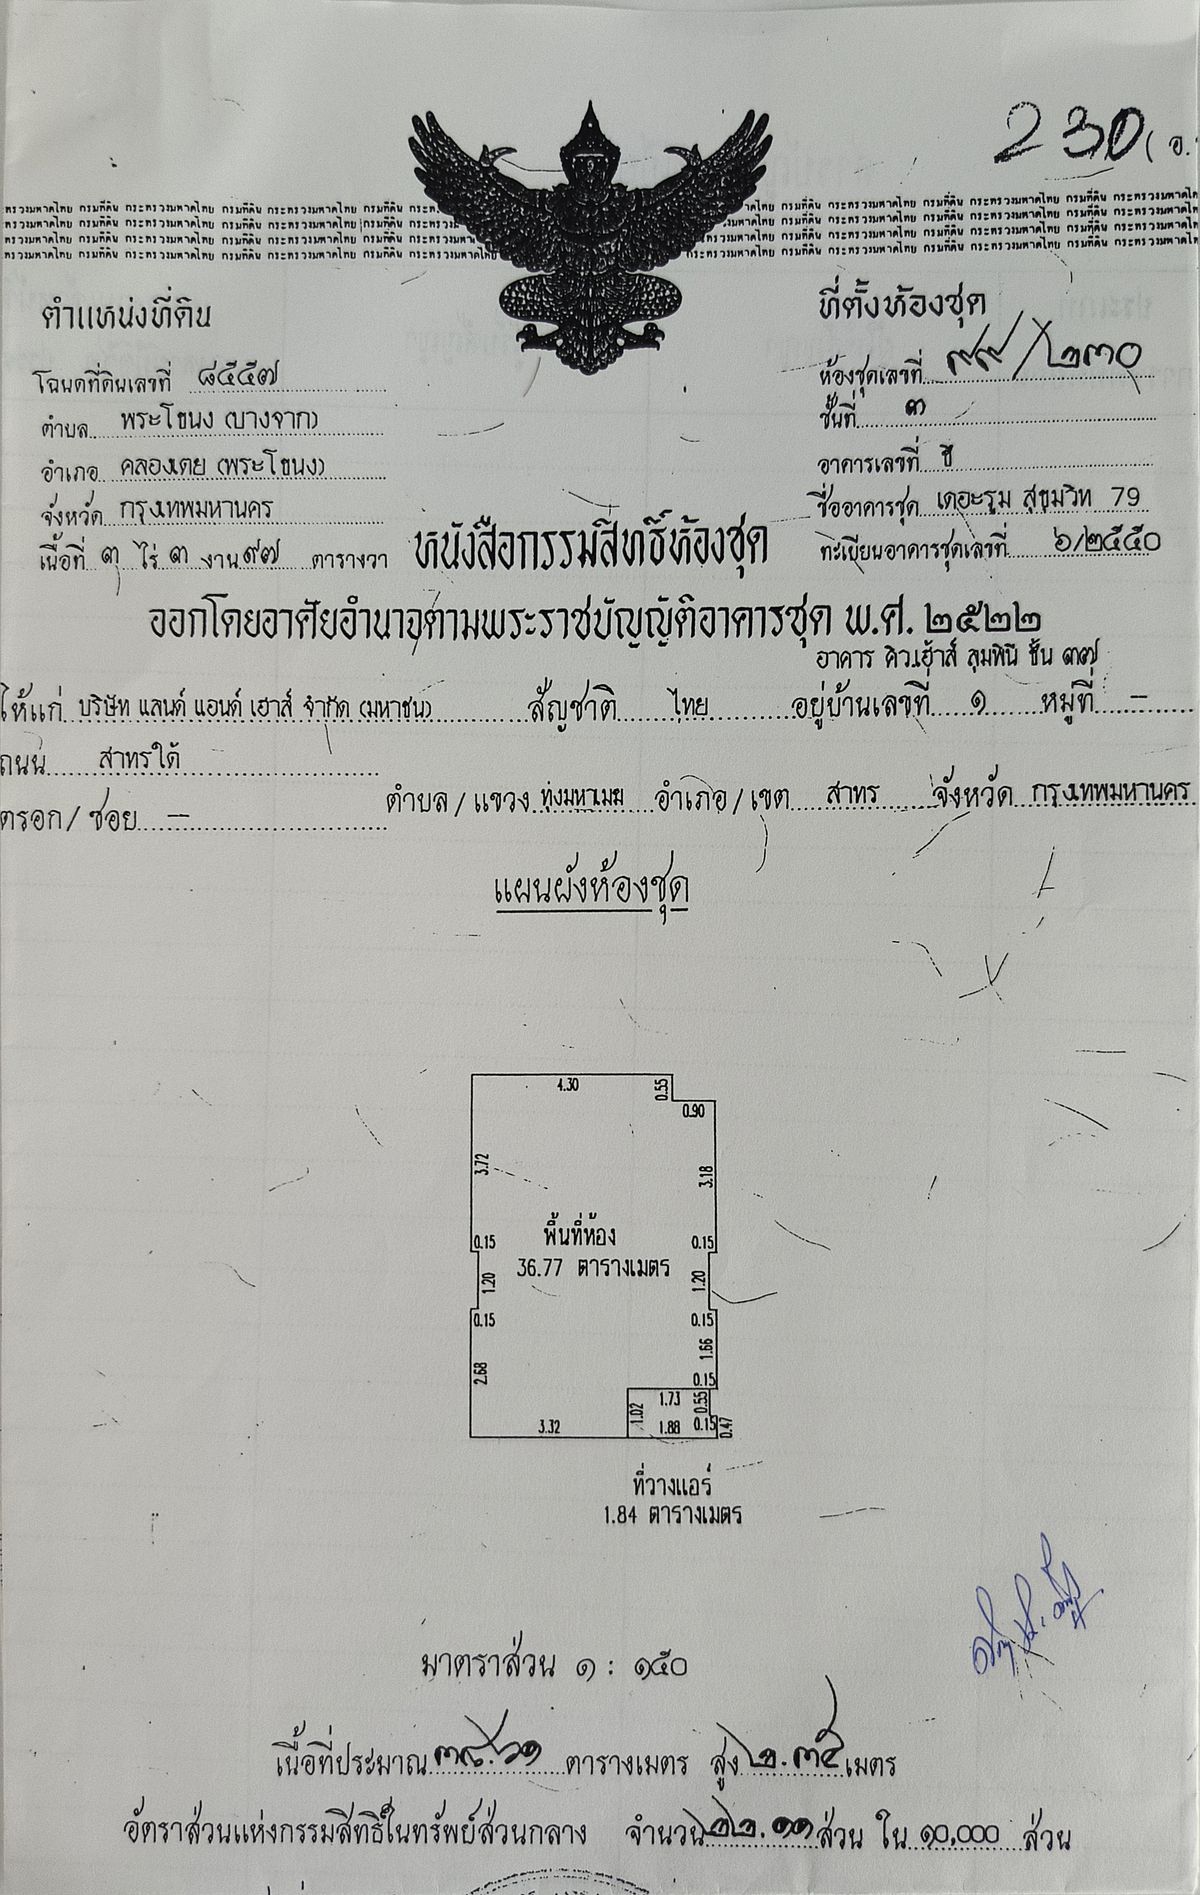 230 (อ.
กระทรวงมหาดไทย กรมที่ดิน กระทรวงมหาดไทย กรมที่ดิน กระทรวงมหาดไทย กรมที่ดิน
กระทรวงมหาดไทย กรมที่ดิน กระทรวงมหาดไทย กรมที่ดิน กระทรวงมหาดไทย กรมที่ดิน
ตำแหน่งที่ดิน
โฉนดที่ดินเลขที่ ๘๕๕๗
ตำบล พระโขนง (บางจาก)
อำเภอ คลองเตย (พระโขนง)
จังหวัด กรุงเทพมหานคร
เนื้อที่ ๓ ไร่ ๓ งาน ๙๗ ตารางวา
ที่ตั้งห้องชุด
ห้องชุดเลขที่ ๙๙/๒๓๐
ชั้นที่ ๓
อาคารเลขที่ ซี
ชื่ออาคารชุด เดอะรูม สุขุมวิท 79
ทะเบียนอาคารชุดเลขที่ ๖/๒๕๕๐
หนังสือกรรมสิทธิ์ห้องชุด
ออกโดยอาศัยอำนาจตามพระราชบัญญัติอาคารชุด พ.ศ. ๒๕๒๒
อาคาร คิวเฮ้าส์ ลุมพินี ชั้น ๓๗
ให้แก่ บริษัท แลนด์ แอนด์ เฮาส์ จำกัด (มหาชน) สัญชาติ ไทย อยู่บ้านเลขที่ ๑ หมู่ที่ –
ถนน สาทรใต้
ตรอก/ซอย – ตำบล/แขวง ทุ่งมหาเมฆ อำเภอ/เขต สาทร จังหวัด กรุงเทพมหานคร
แผนผังห้องชุด
4.30
0.55
0.90
3.72
3.18
พื้นที่ห้อง
36.77 ตารางเมตร
0.15
0.15
1.20
1.20
0.15
0.15
2.68
1.66
0.15
1.73
0.55
1.02
3.32
1.88
0.15
0.47
ที่วางแอร์
1.84 ตารางเมตร
มาตราส่วน ๑ : ๑๕๐
เนื้อที่ประมาณ ๓๘.๖๑ ตารางเมตร สูง ๒.๓๕ เมตร
อัตราส่วนแห่งกรรมสิทธิ์ในทรัพย์ส่วนกลาง จำนวน ๒๒.๑๑ ส่วน ใน ๑๐,๐๐๐ ส่วน